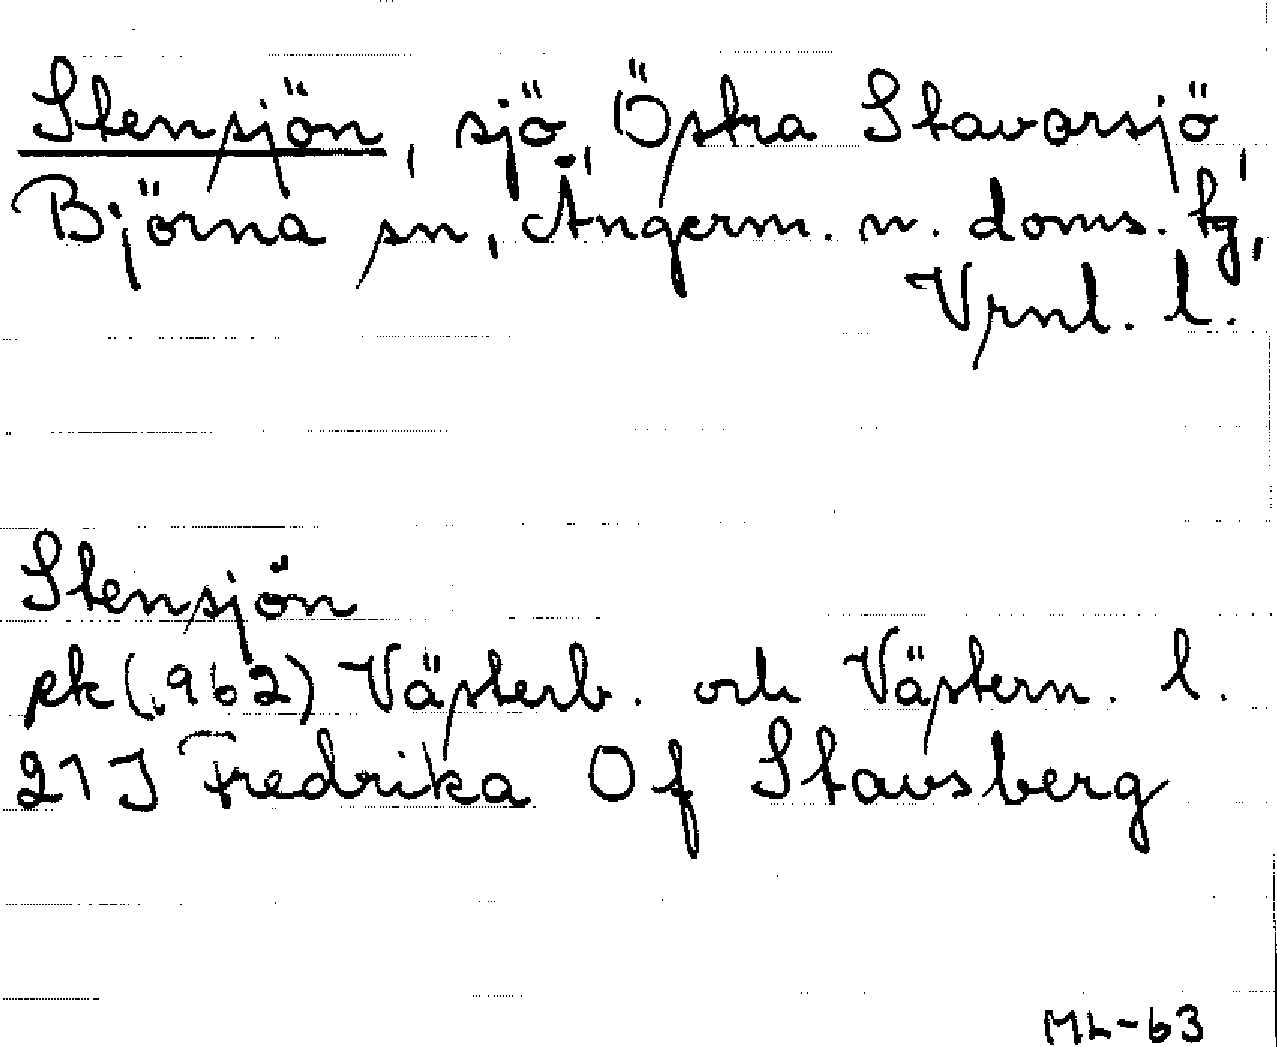 Stensjön, sjö, Östra Stavarsjö,
Björna sn, Ångerm. n. doms. tg,
Vrnl. l.
Stensjön
ek (1962) Västerb. och Västern. l.
21J Fredrika 0f Stavsberg
ML-63